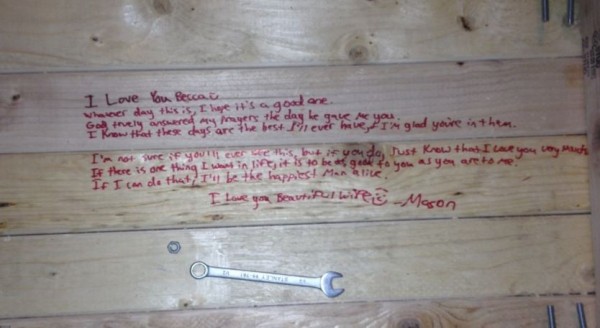 I Love You Becca
Whatever day this is, I hope it's a good one.
God truely answered my prayers the day he gave me you.
I know that these days are the best I'll ever have, & I'm glad you're in them.
I'm not sure if you'll ever see this, but if you do, Just know that I love you very much
If there is one thing I want in life, it is to be as good to you as you are to me.
If I can do that, I'll be the happiest Man alive.
I Love you Beautiful Wife
-Mason
STANLEY